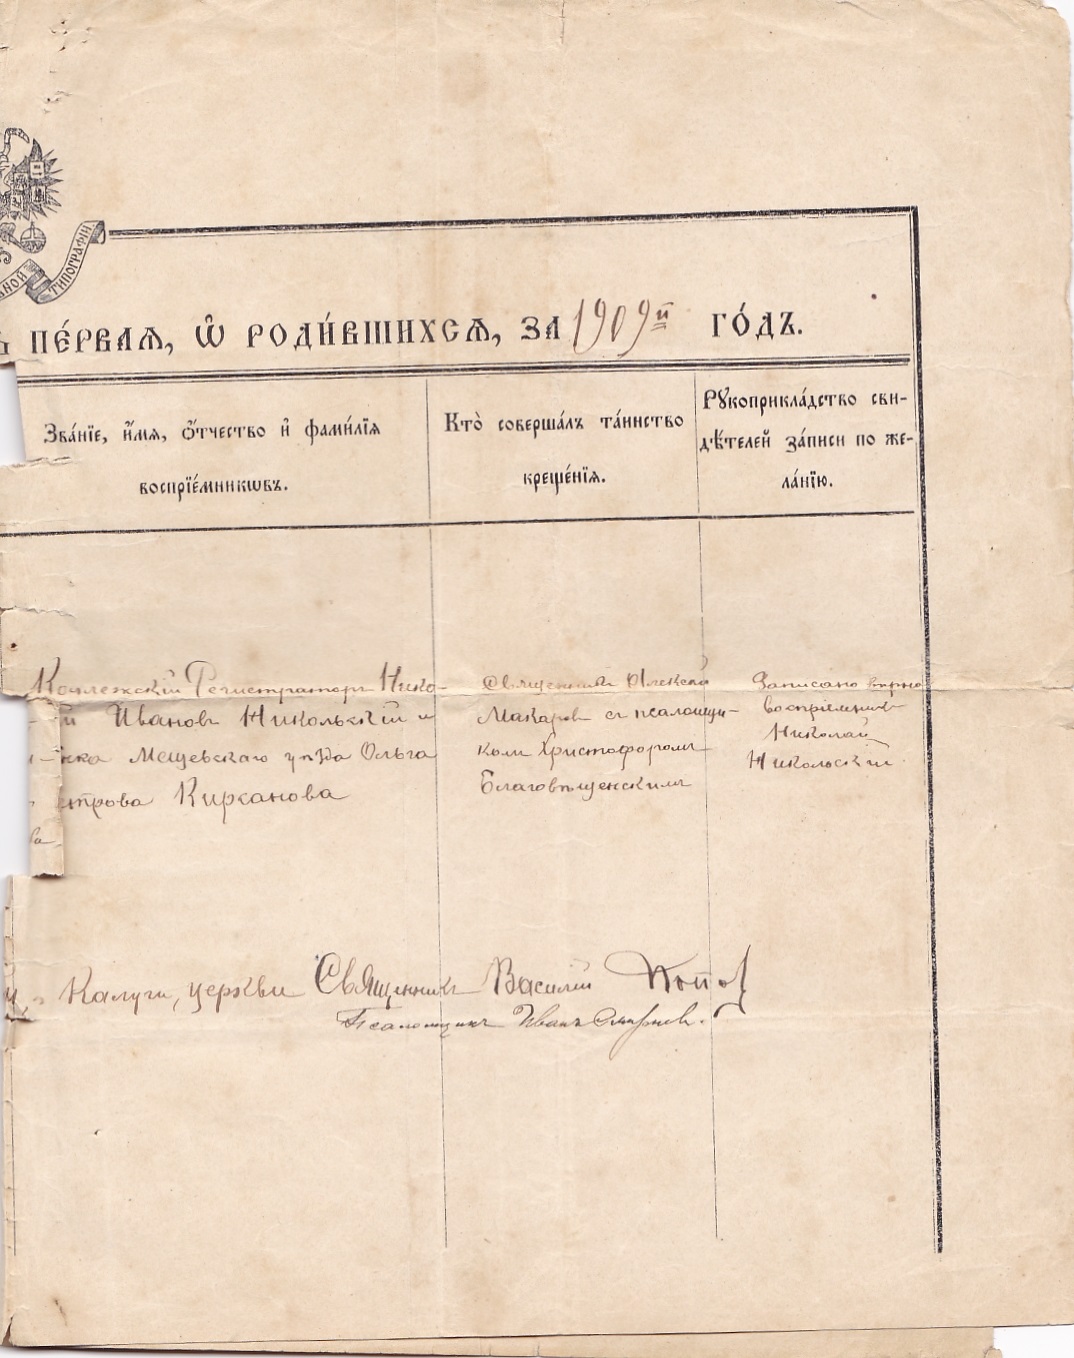 ТИПОГРАФІИ
пе́рваѧ, ѽ роди́вшихсѧ, за 1909й го́дъ.
Зва́нїе, и҆́мѧ, ѻ҆́тчество и҆ фами́лїѧ
воспрїе́мникѡвъ.
Кто̀ соверша́лъ та́инство
креще́нїѧ.
Рꙋкоприкла́дство сви-
дѣ́телей за́писи по же-
ла́нїю.
Коллежскій Регистраторъ Нико-
й Ивановъ Никольскій и
нка Мещевскаго уѣзда Ольга
етрова Кирханова
ва
Священникъ Алексѣй
Макаровъ съ псаломщи-
комъ Христофоромъ
Благовѣщенскимъ
Записано вѣрно
воспріемникъ
Николай
Никольскій
Калуги, церкви Священникъ Василій Попов
Псаломщикъ Иванъ Смирнов.